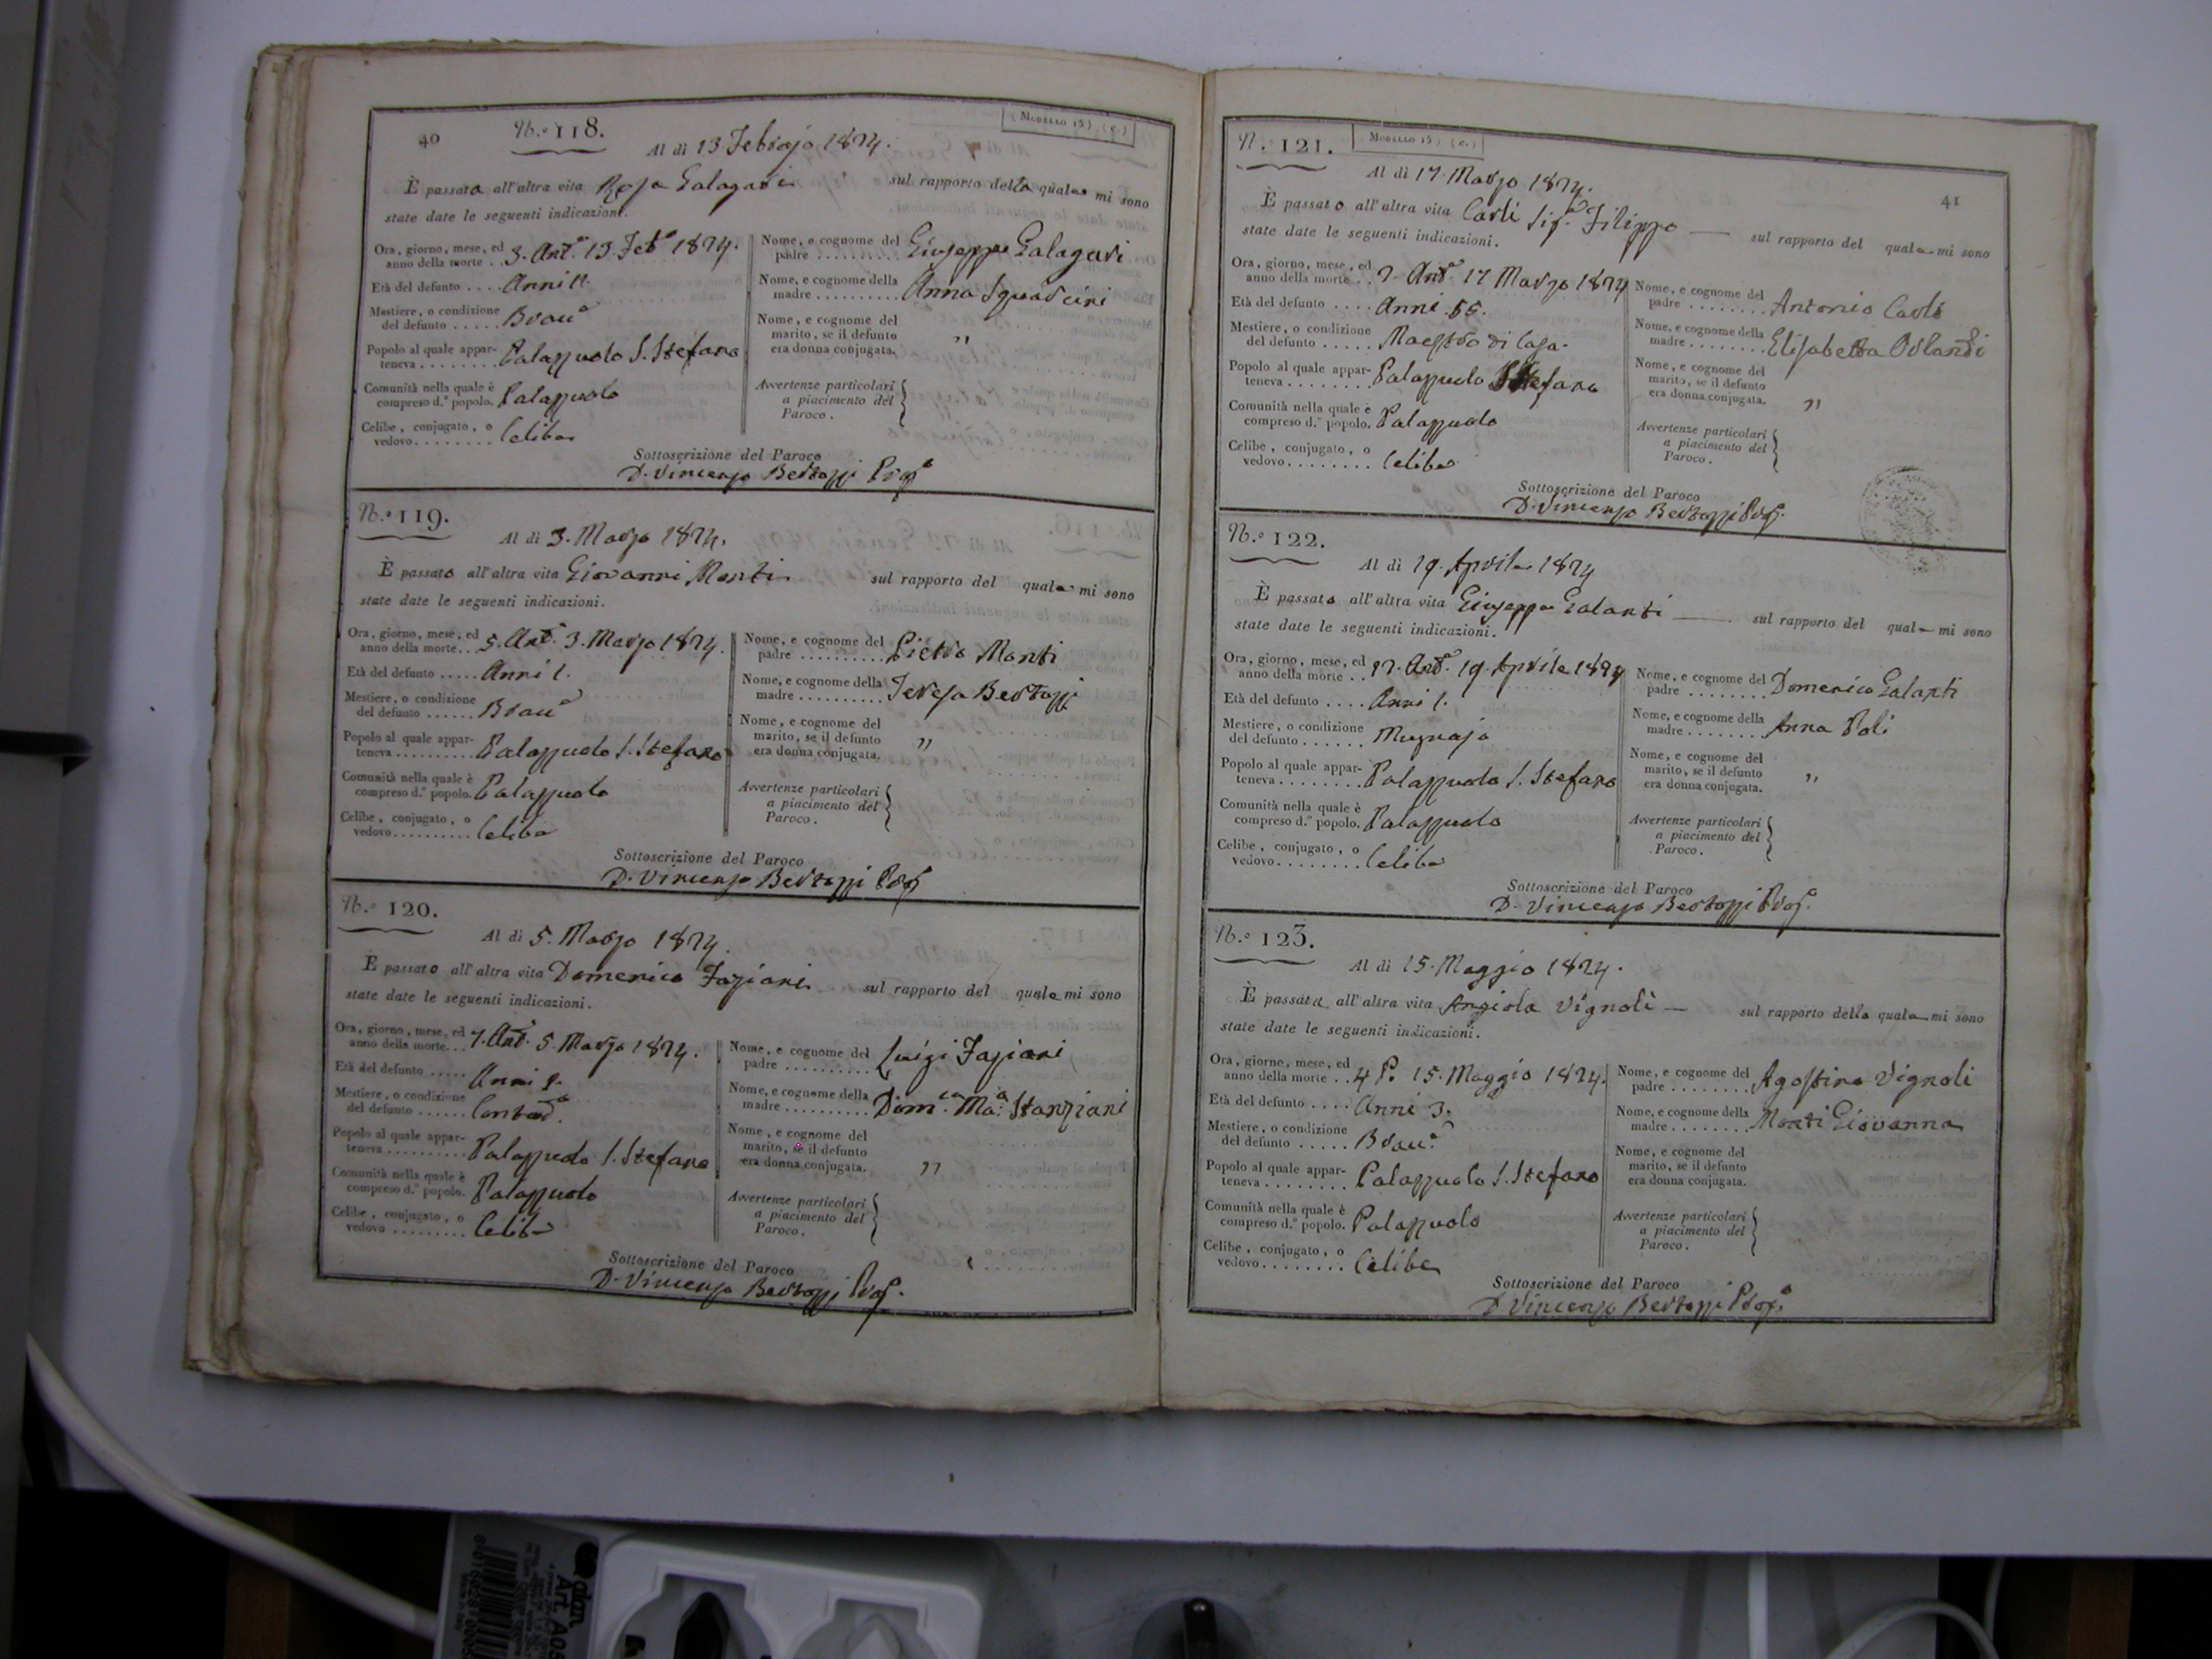 40
N.° 118.
(Modello 15) (c.)
Al dì 13 Febrajo 1824.
È passata all'altra vita Rosa Galagari sul rapporto della quale mi sono
state date le seguenti indicazioni.
Ora, giorno, mese, ed
anno della morte .. 3. Ant.e 13. Feb.o 1824.
Età del defunto .... Anni
Mestiere, o condizione
del defunto ......
Popolo al quale appar-
teneva ........ Palazzuolo S. Stefano
Comunità nella quale è
compreso d.° popolo. Palazzuolo
Celibe, conjugato, o
vedovo ........ Celibe
Nome, e cognome del
padre .......... Giuseppe Galagari
Nome, e cognome della
madre .......... Anna Squarcini
Nome, e cognome del
marito, se il defunto
era donna conjugata. "
Avvertenze particolari
a piacimento del
Paroco.
Sottoscrizione del Paroco
D. Vincenzo Bertozzi
N.° 119.
Al dì 3. Marzo 1824.
È passato all'altra vita Giovanni Monti sul rapporto del quale mi sono
state date le seguenti indicazioni.
Ora, giorno, mese, ed
anno della morte... 5. Ant.e 3. Marzo 1824.
Età del defunto ..... Anni 1.
Mestiere, o condizione
del defunto ......
Popolo al quale appar-
teneva .......... Palazzuolo S. Stefano
Comunità nella quale è
compreso d.° popolo. Palazzuolo
Celibe, conjugato, o
vedovo .......... Celibe
Nome, e cognome del
padre .......... Pietro Monti
Nome, e cognome della
madre .......... Teresa Bertozzi
Nome, e cognome del
marito, se il defunto
era donna conjugata. "
Avvertenze particolari
a piacimento del
Paroco.
Sottoscrizione del Paroco
D. Vincenzo Bertozzi
N.° 120.
Al dì 5. Marzo 1824.
È passato all'altra vita Domenico Fagiani sul rapporto del quale mi sono
state date le seguenti indicazioni.
Ora, giorno, mese, ed
anno della morte... 7. Ant.e 5. Marzo 1824.
Età del defunto ..... Anni
Mestiere, o condizione
del defunto ......
Popolo al quale appar-
teneva .......... Palazzuolo S. Stefano
Comunità nella quale è
compreso d.° popolo. Palazzuolo
Celibe, conjugato, o
vedovo ......... Celibe
Nome, e cognome del
padre .......... Luigi Fagiani
Nome, e cognome della
madre .......... Dom.ca Ma.a Stanziani
Nome, e cognome del
marito, se il defunto
era donna conjugata. "
Avvertenze particolari
a piacimento del
Paroco.
Sottoscrizione del Paroco
D. Vincenzo Bertozzi
N.° 121.
Modello 15) (c.)
41
Al dì 17. Marzo 1824.
È passato all'altra vita Carli Sig.r Filippo sul rapporto del quale mi sono
state date le seguenti indicazioni.
Ora, giorno, mese, ed
anno della morte .. 2. Ant.e 17 Marzo 1824
Età del defunto .... Anni 55.
Mestiere, o condizione
del defunto ..... Maestro di Casa.
Popolo al quale appar-
teneva ........ Palazzuolo S. Stefano
Comunità nella quale è
compreso d.° popolo. Palazzuolo
Celibe, conjugato, o
vedovo ........ Celibe
Nome, e cognome del
padre ........ Antonio Carli
Nome, e cognome della
madre ........ Elisabetta Orlandi
Nome, e cognome del
marito, se il defunto
era donna conjugata. "
Avvertenze particolari
a piacimento del
Paroco.
Sottoscrizione del Paroco
D. Vincenzo Bertozzi
N.° 122.
Al dì 19. Aprile 1824
È passato all'altra vita Giuseppe Galanti sul rapporto del quale mi sono
state date le seguenti indicazioni.
Ora, giorno, mese, ed
anno della morte .. 12. Ant.e 19. Aprile 1824
Età del defunto .... Anni 1.
Mestiere, o condizione
del defunto ...... Mugnajo
Popolo al quale appar-
teneva ........ Palazzuolo S. Stefano
Comunità nella quale è
compreso d.° popolo. Palazzuolo
Celibe, conjugato, o
vedovo ........ Celibe
Nome, e cognome del
padre ........ Domenico Galanti
Nome, e cognome della
madre ........ Anna Poli
Nome, e cognome del
marito, se il defunto
era donna conjugata. "
Avvertenze particolari
a piacimento del
Paroco.
Sottoscrizione del Paroco
D. Vincenzo Bertozzi
N.° 123.
Al dì 15. Maggio 1824.
È passata all'altra vita Angiola Vignoli sul rapporto della quale mi sono
state date le seguenti indicazioni.
Ora, giorno, mese, ed
anno della morte .. 4 P. 15. Maggio 1824.
Età del defunto .... Anni 3.
Mestiere, o condizione
del defunto .....
Popolo al quale appar-
teneva ........ Palazzuolo S. Stefano
Comunità nella quale è
compreso d.° popolo. Palazzuolo
Celibe, conjugato, o
vedovo ........ Celibe
Nome, e cognome del
padre ........ Agostino Vignoli
Nome, e cognome della
madre ........ Monti Giovanna
Nome, e cognome del
marito, se il defunto
era donna conjugata.
Avvertenze particolari
a piacimento del
Paroco.
Sottoscrizione del Paroco
D Vincenzo Bertozzi